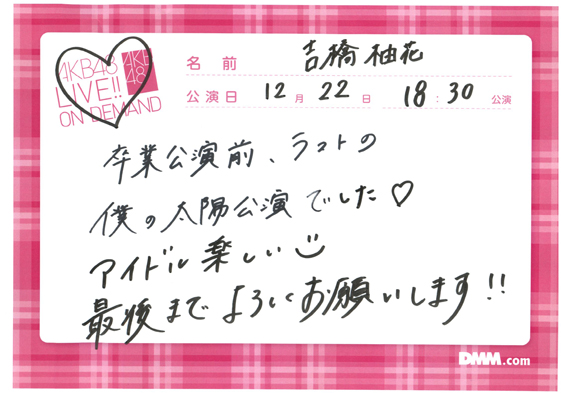 AKB48
LIVE!!
ON DEMAND
AKB
48
名前 吉橋柚花
公演日 12月22日 18:30公演
卒業公演前、ラストの
僕の太陽公演でした♡
アイドル楽しい
最後までよろしくお願いします!!
DMM.com